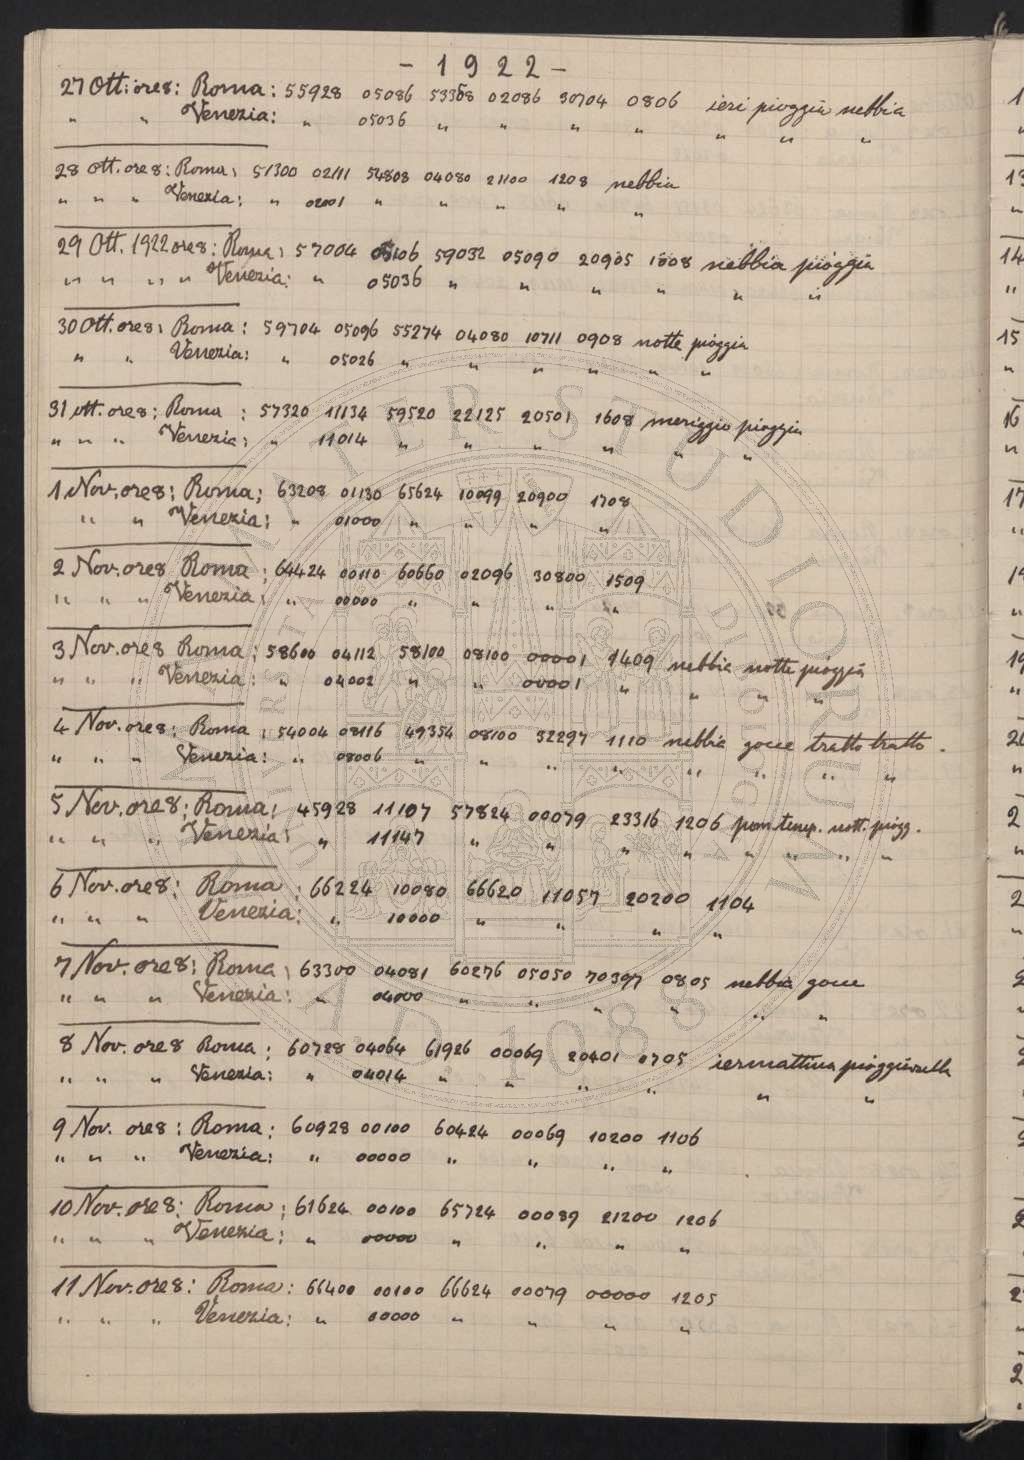 - 1922 -
27 Ott: ore 8: Roma: 55928 05086 53358 02086 30704 0806 ieri pioggia nebbia
" " Venezia: " 05036 " " " " " " "
28 Ott. ore 8: Roma: 51300 02111 54808 04080 21100 1208 nebbia
" " " Venezia: " 02001 " " " " "
29 Ott. 1922 ore 8: Roma: 57004 05106 59032 05090 20905 1008 nebbia pioggia
" " " " Venezia: " 05036 " " " " " "
30 Ott. ore 8: Roma: 59704 05096 55274 04080 10711 0908 notte pioggia
" " Venezia: " 05026 " " " " " "
31 ott. ore 8: Roma: 57320 11134 59520 22125 20501 1608 meriggio pioggia
" " " Venezia: " 11014 " " " " " "
1 Nov. ore 8: Roma: 63208 01130 65624 10099 20900 1708
" " Venezia: " 01000 " " " "
2 Nov. ore 8 Roma: 64424 00110 60660 02096 30800 1509
" " " Venezia: " 00000 " " " "
3 Nov. ore 8 Roma: 58600 04112 58100 08100 00001 1409 nebbia notte pioggia
" " " Venezia: " 04002 " " 00001 " " " "
4 Nov. ore 8: Roma: 54004 08116 49354 08100 32297 1110 nebbia gocce tratto tratto.
" " " Venezia: " 08006 " " " " " " " "
5 Nov. ore 8: Roma: 45928 11107 57824 00079 23316 1206 pom. temp. nott. piogg.
" " " Venezia: " 11147 " " " " " " " "
6 Nov. ore 8: Roma: 66224 10080 66620 11057 20200 1104
" " " Venezia: " 10000 " " " "
7 Nov. ore 8: Roma: 63300 04081 60276 05050 70397 0805 nebbia gocce
" " " Venezia: " 04000 " " " " " "
8 Nov. ore 8 Roma: 60728 04064 61926 00069 20401 0705 iermattina pioggiarella
" " " Venezia: " 04014 " " " " " "
9 Nov. ore 8: Roma: 60928 00100 60424 00069 10200 1106
" " " Venezia: " 00000 " " " "
10 Nov. ore 8: Roma: 61624 00100 65724 00089 21200 1206
" " " Venezia: " 00000 " " " "
11 Nov. ore 8: Roma: 66400 00100 66624 00079 00000 1205
" " " Venezia: " 00000 " " " "